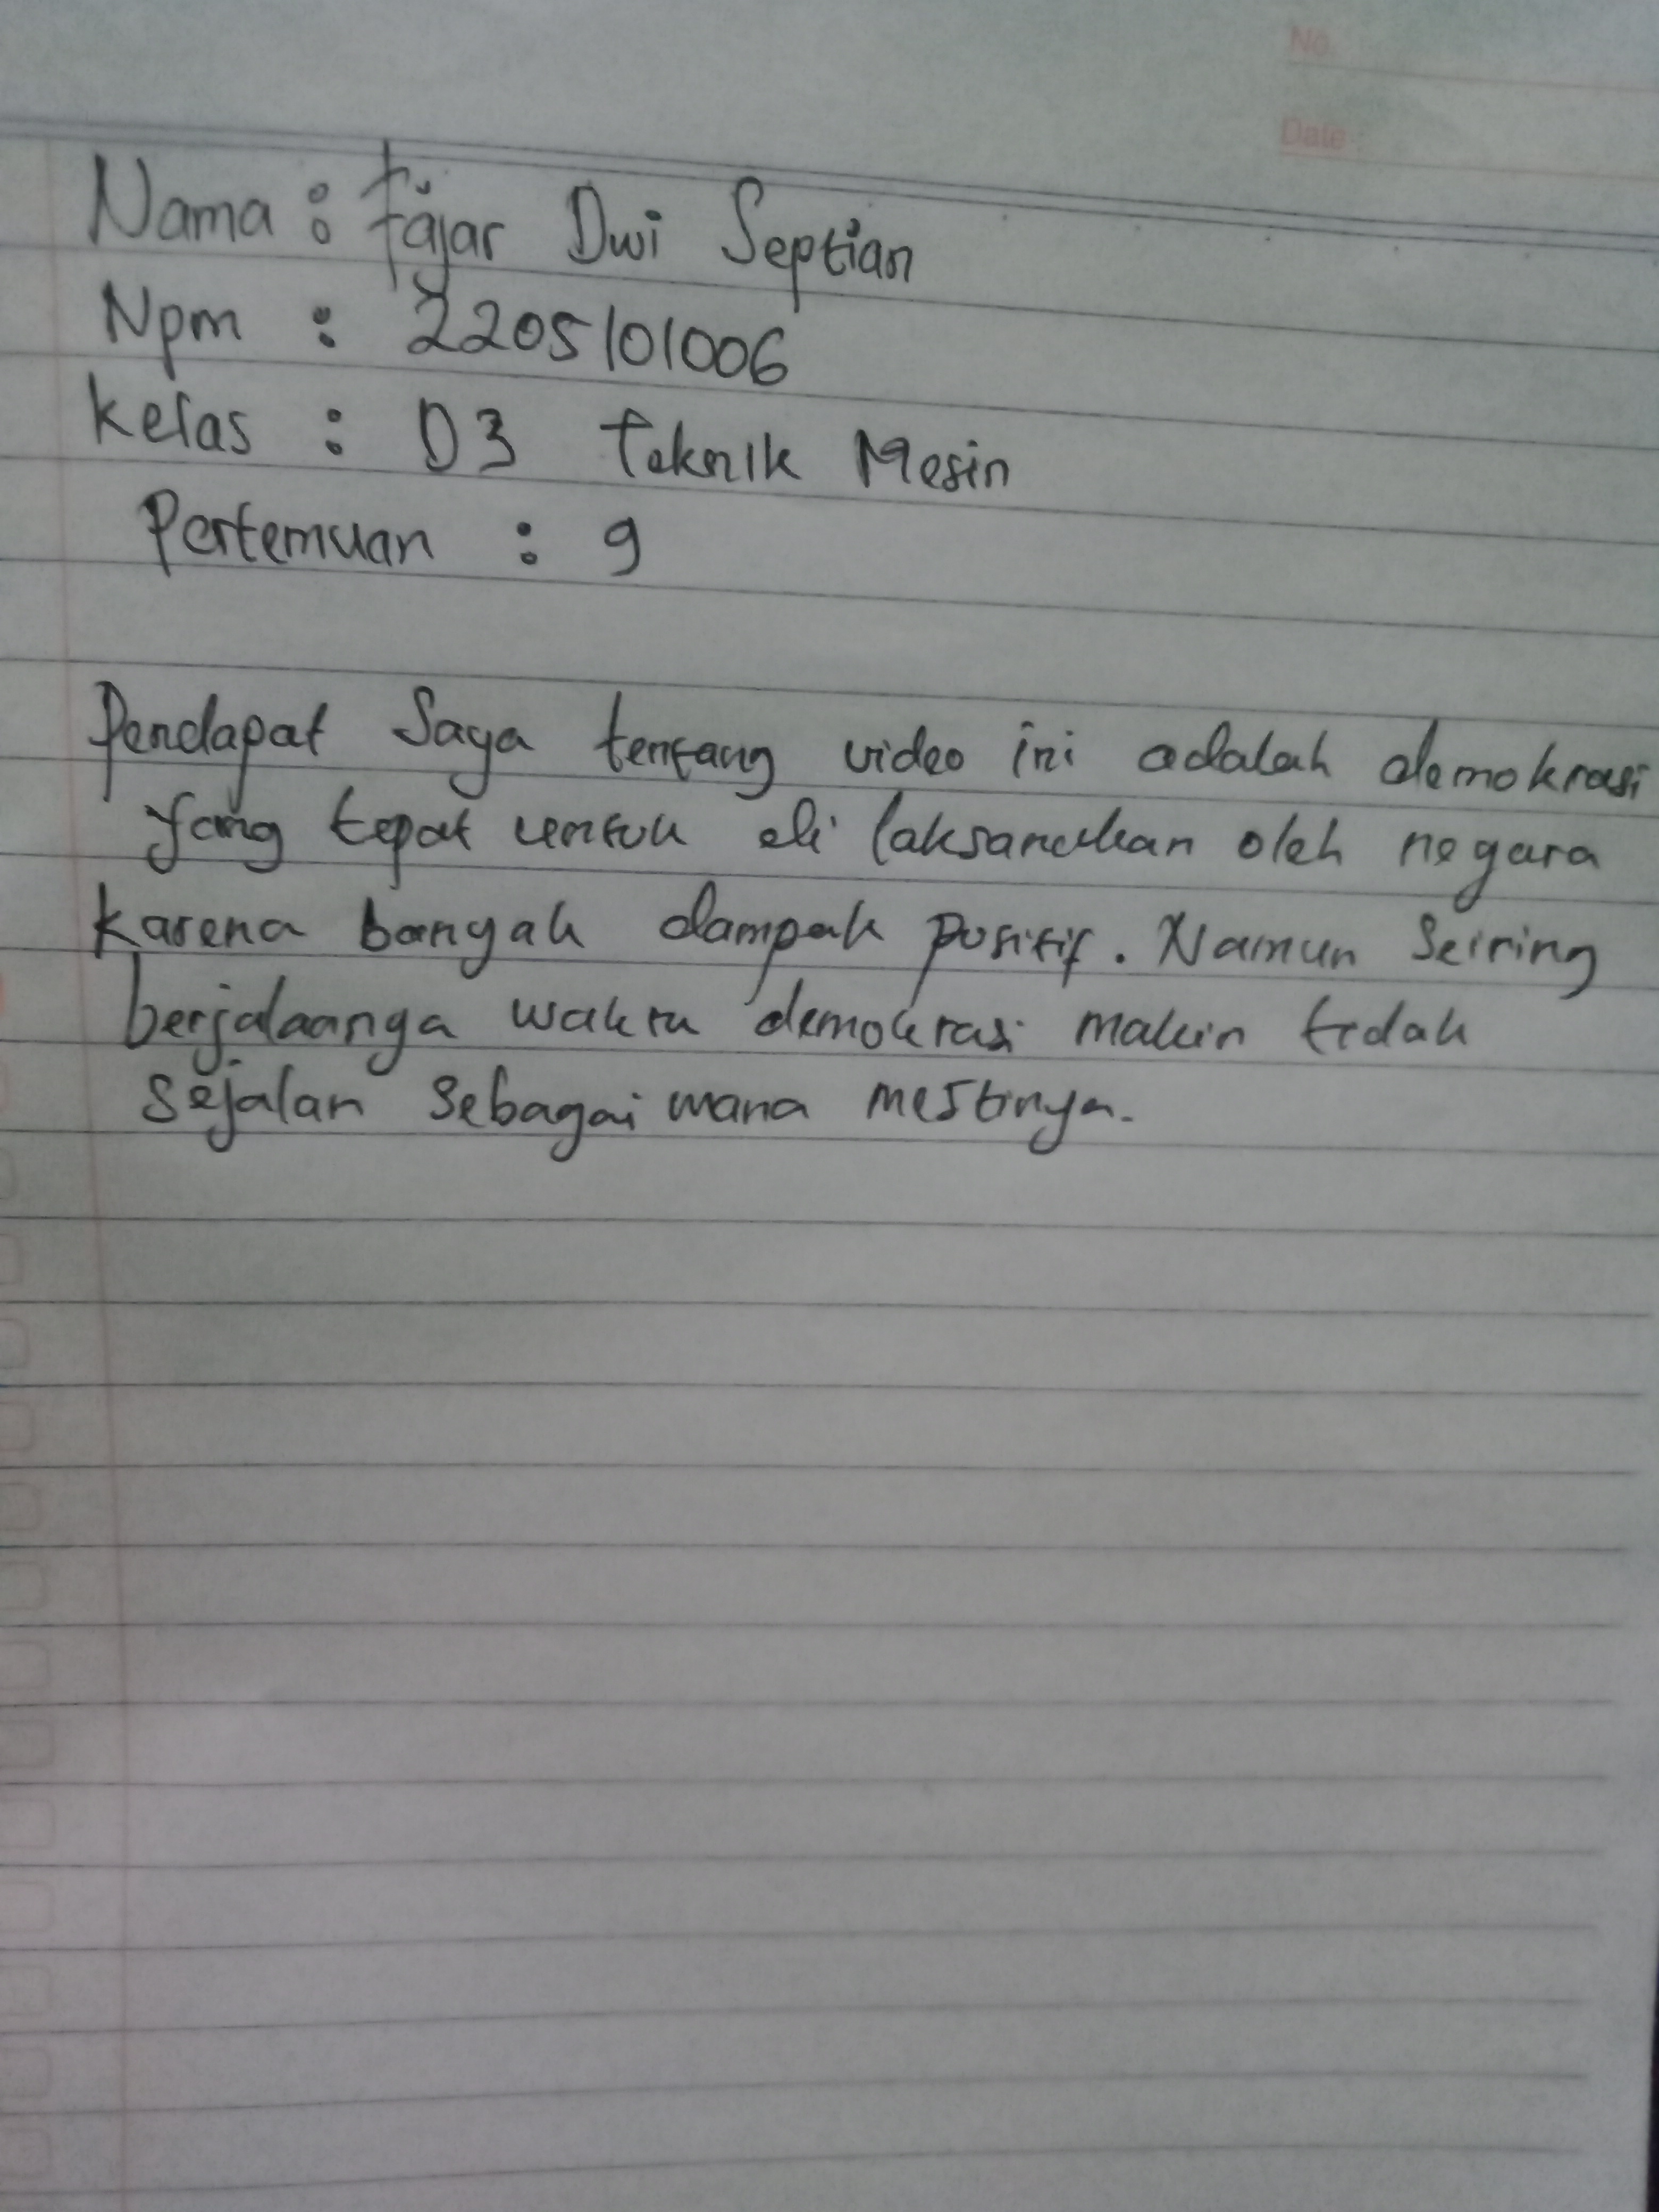 No.
Date :
Nama : Fajar Dwi Septian
Npm : 2205101006
Kelas : D3 Teknik Mesin
Pertemuan : 9
Pendapat Saya tentang video ini adalah demokrasi
yang tepat untuk di laksanakan oleh negara
karena banyak dampak positif. Namun Seiring
berjalaanya waktu demokrasi makin tidak
sejalan sebagai mana mestinya.